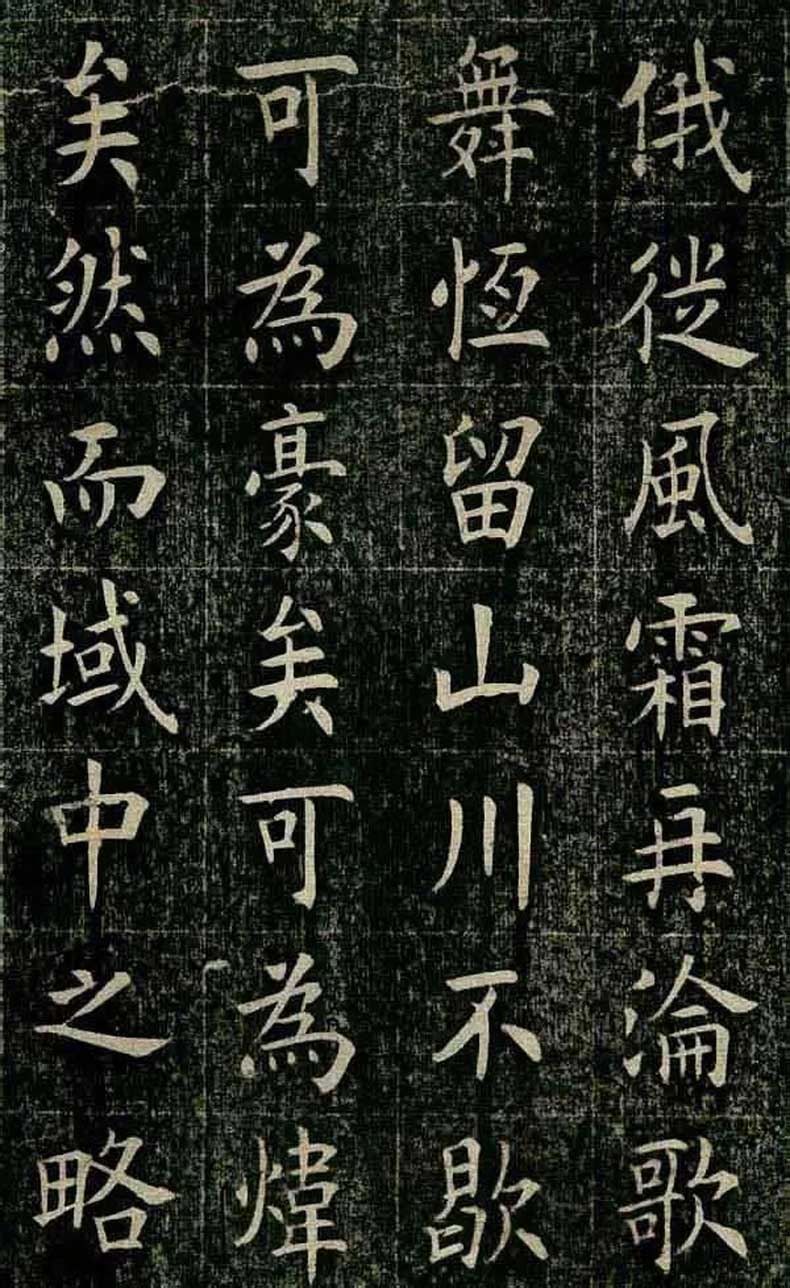 俄徙風霜再淪歌
舞恆留山川不歇
可為豪矣可為煒
矣然而域中之略